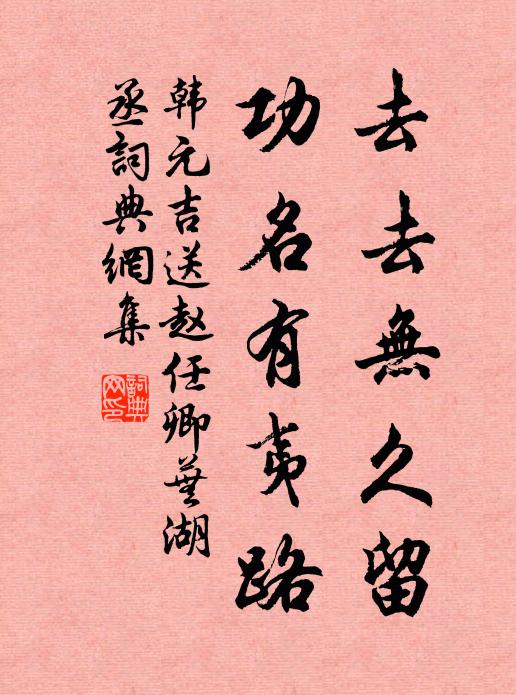 去去無久留
功名有夷路
韩元吉送赵任卿蕪湖
丞詞典網集
詞典
网印